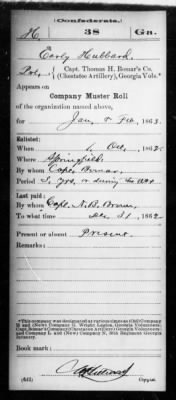 (Confederate.)
H 38 Ga.
Early Hubbard
Pvt., Capt. Thomas H. Bomar's Co.
(Chestatee Artillery), Georgia Vols.*
Appears on
Company Muster Roll
of the organization named above,
for Jan & Feb, 1863.
Enlisted:
When 1 Oct, 1862
Where Springfield
By whom Capt Bomar
Period 3 yrs. or during the war
Last paid:
By whom Capt. N.B. Brown
To what time Dec 31, 1862
Present or absent Present
Remarks:
*This company was designated at various times as (Old) Company
H and (New) Company G, Wright Legion, Georgia Volunteers;
Capt. Bomar's Company (Chestatee Artillery) Georgia Volunteers;
and Company L and (New) Company N, 38th Regiment Georgia
Infantry.
Book mark:
(642)
Copyist.